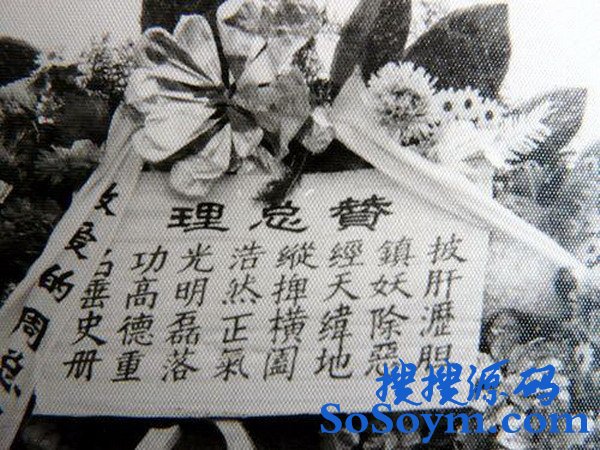 贊总理
披肝瀝胆
鎮妖除惡
經天緯地
縱捭橫闔
浩然正氣
光明磊落
功高德重
名垂史册
敬爱的周总
搜搜源码
SoSoym.com